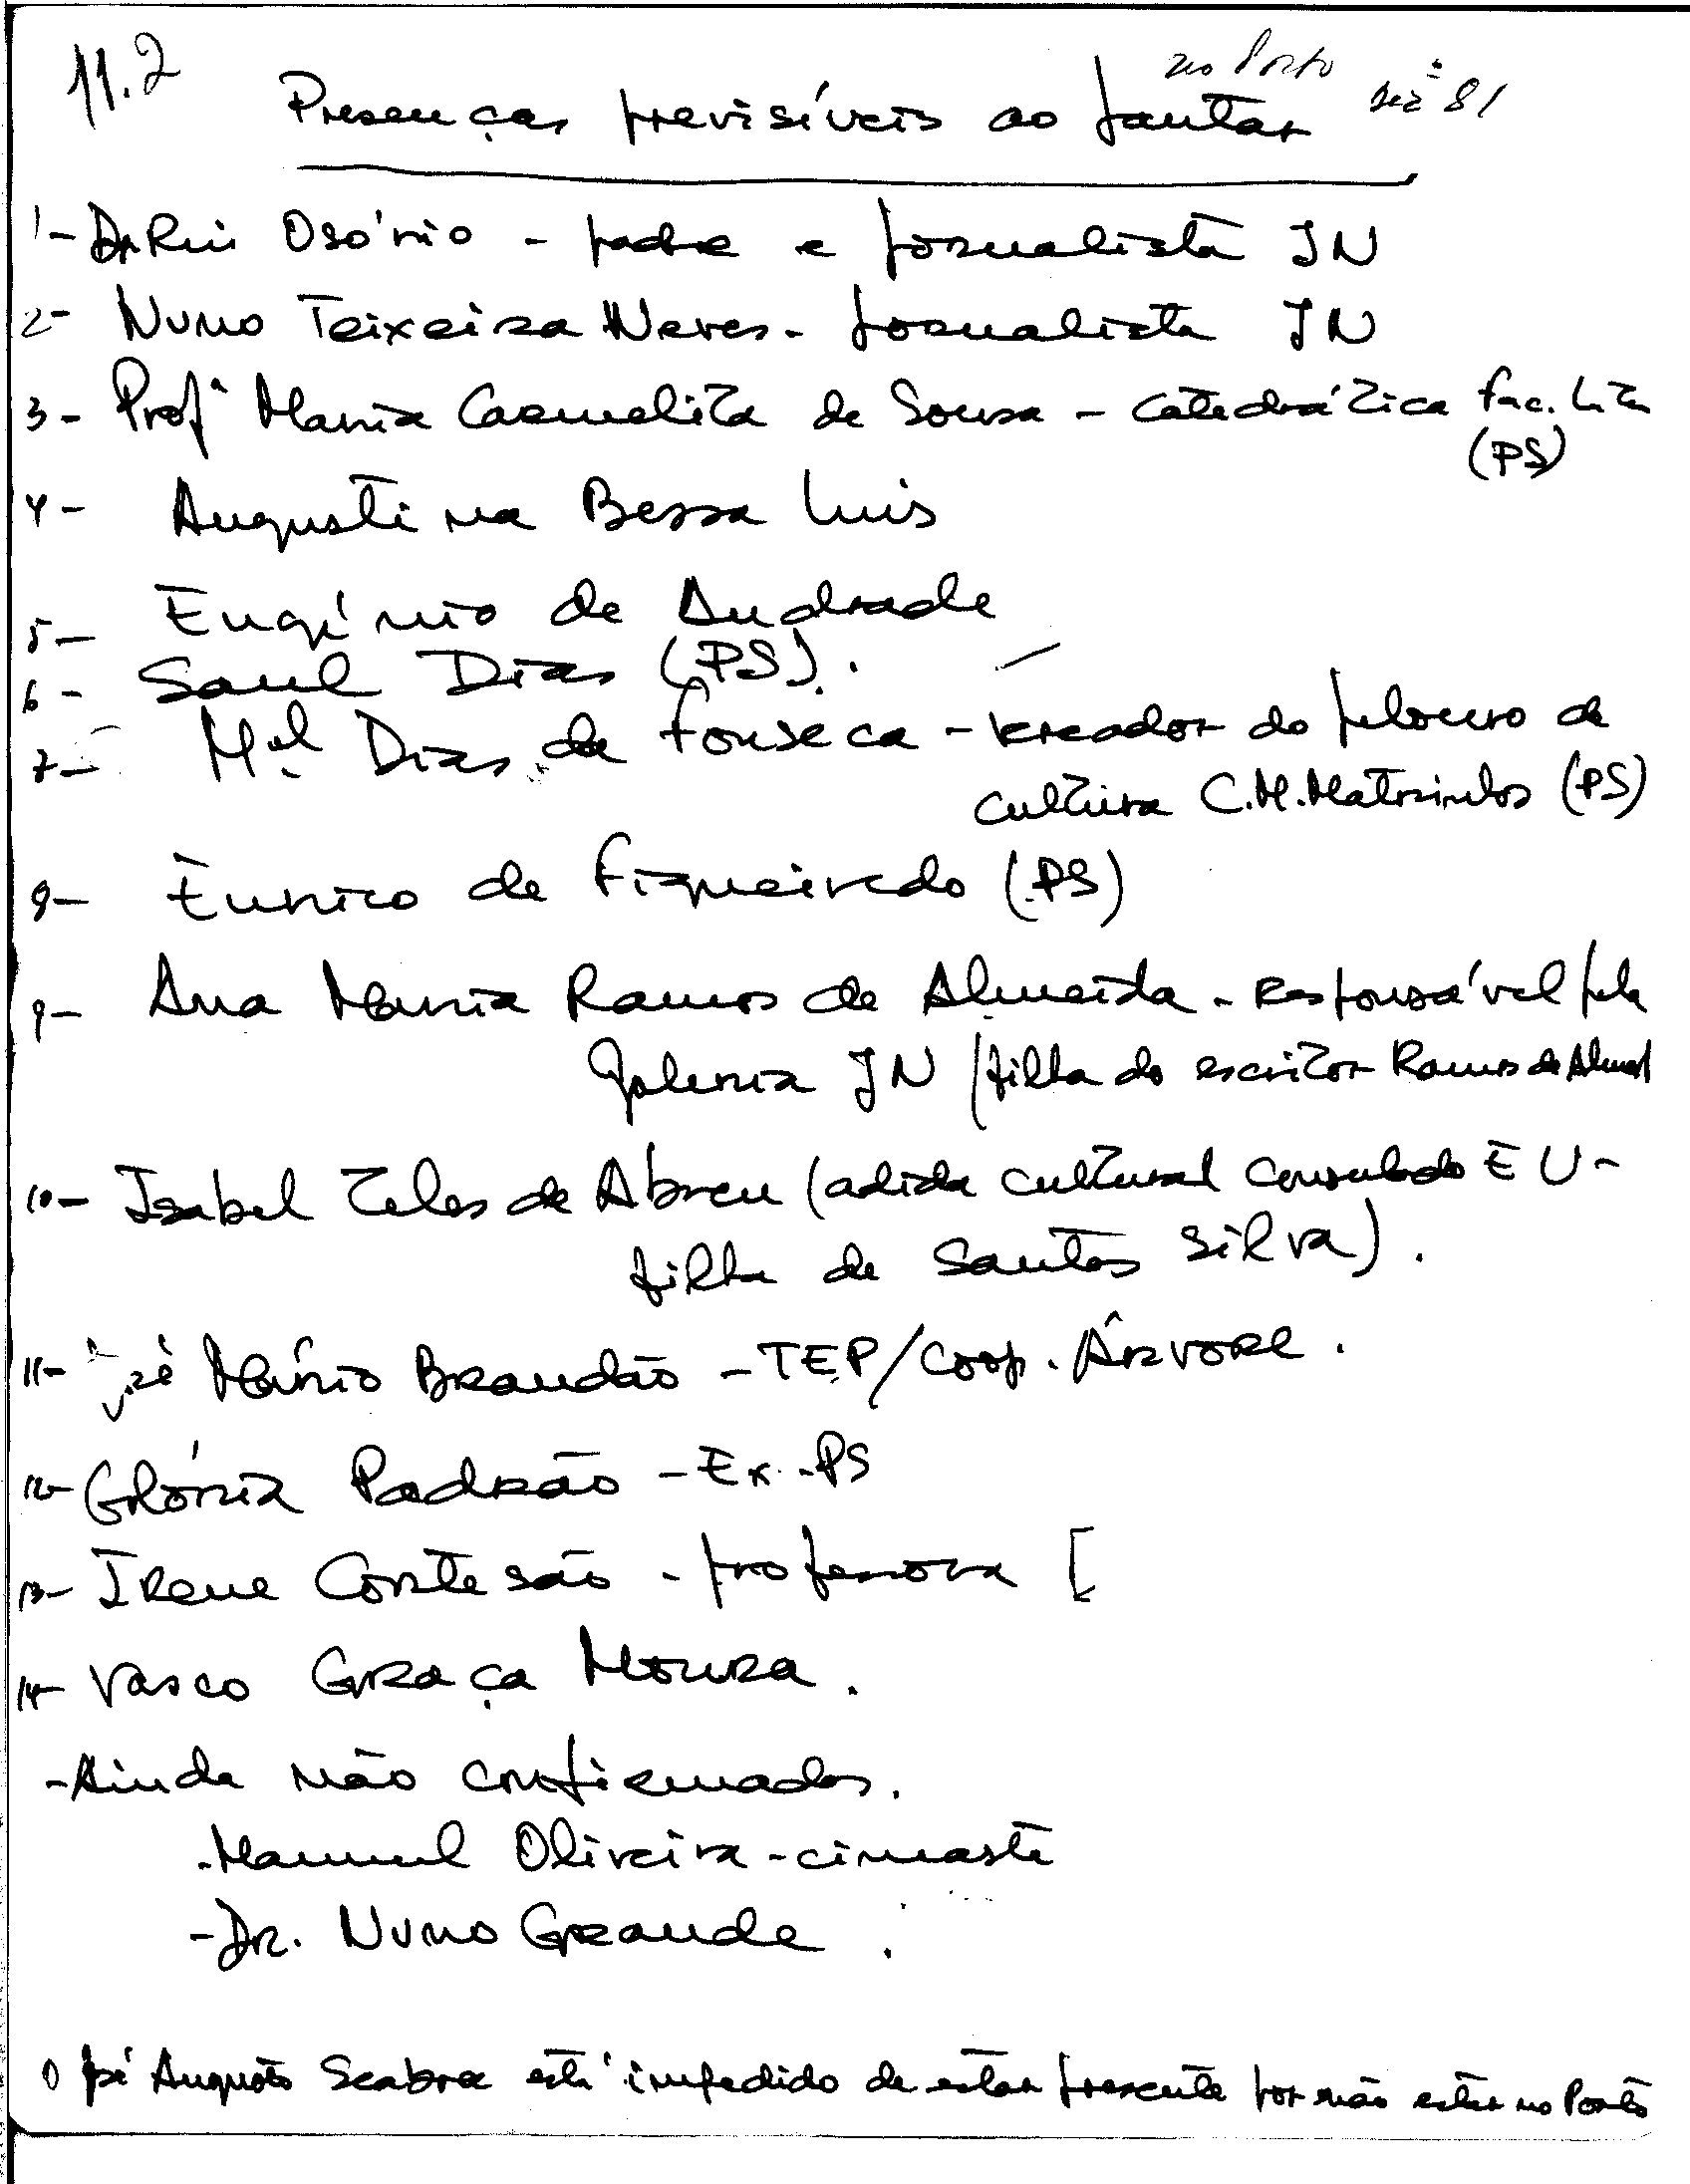 11.2
no Porto
Dez º 81
Presenças previsíveis ao jantar
1- Dr Rui Osório - padre e jornalista JN
2- Nuno Teixeira Neves - jornalista JN
3- Profª Maria Carmelita de Sousa - catedrática fac. Let
(PS)
4- Augustina Bessa Luis
5- Eugénio de Andrade
6- Saul Dias (PS).
7- Mel Dias da Fonseca - vereador do pelouro de
cultura C.M. Matosinhos (PS)
8- Eurico de Figueiredo (PS)
9- Ana Maria Ramos de Almeida - responsável pela
Galeria JN (filha do escritor Ramos de Almed
10- Isabel Teles de Abreu (adida cultural Consulado EU -
filha de Santos Silva).
11- José Mário Brandão - TEP/Coop. Árvore.
12- Glória Padrão - Ex-PS
13- Irene Cortesão - professora [
14- Vasco Graça Moura.
- Ainda não confirmados.
. Manuel Oliveira - cineasta
- Dr. Nuno Grande.
O José Augusto Seabra está impedido de estar presente por não estar no Porto